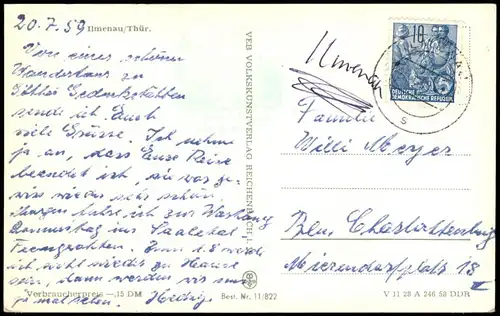 20.7.59 Ilmenau/Thür.
Von einer schönen
Wanderung zu
Göthes Gedenkstätten
sende ich Euch
viele Grüsse. Ich nehme
ja an, dass Eure Reise
beendet ist, sie war ge-
wiss wieder sehr schön.
Morgen fahre ich zur
Donnerstag ins Saaletal
Am 1.8 werde
ich wohl wieder zu Hause
sein, dann werden wir uns
ja mal sehen. Hedwig
Verbraucherpreis —,15 DM
Best. Nr. 11/822
VEB VOLKSKUNSTVERLAG REICHENBACH I. V.
Ilmenau
DEUTSCHE
DEMOKRATISCHE REPUBLIK
10
Familie
Willi Meyer
Bln Charlottenburg
Mierendorffplatz 18
V 11 28 A 246 58 DDR